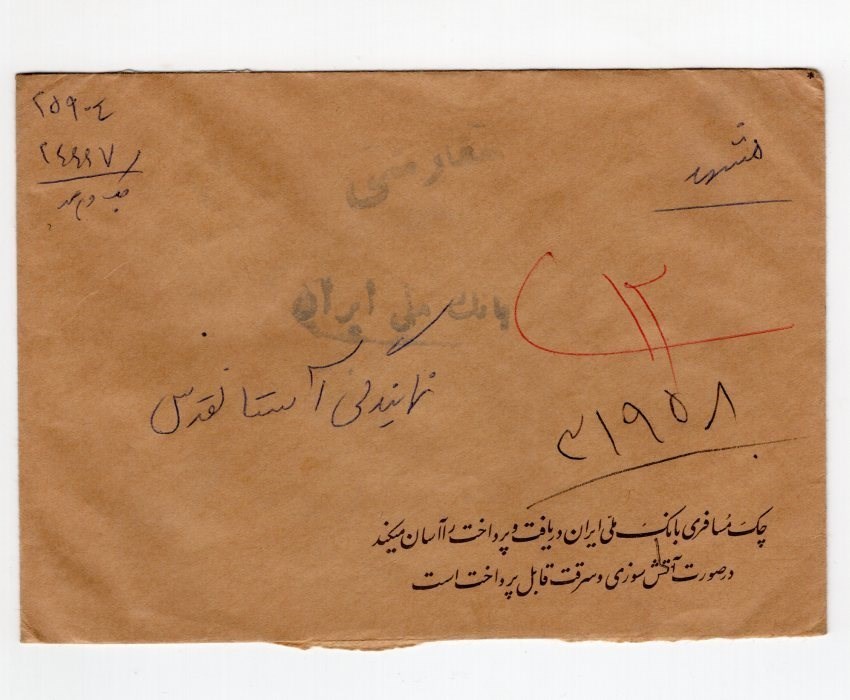 ۲۵۹-۴
۲۴۹۹۷
مشهد
سفارشی
۱۲
بانک ملی ایران
نمایندگی آستانقدس
۳۱۹۵۸
چک مسافری بانک ملّی ایران دریافت و پرداخت را آسان میکند
درصورت آتش سوزی و سرقت قابل پرداخت است